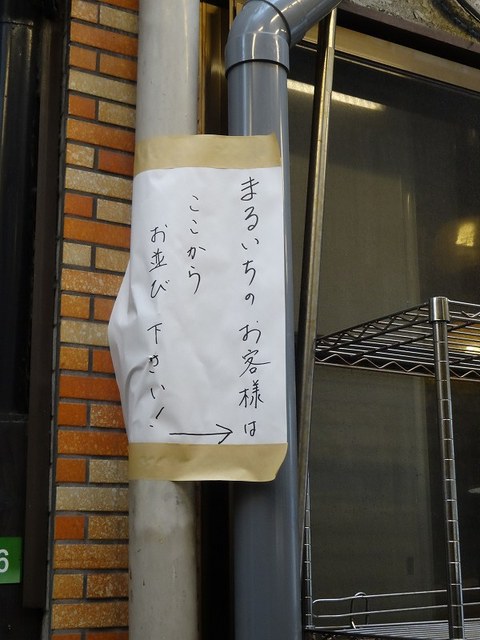 まるいちのお客様は
ここから
お並び下さい！
→
6